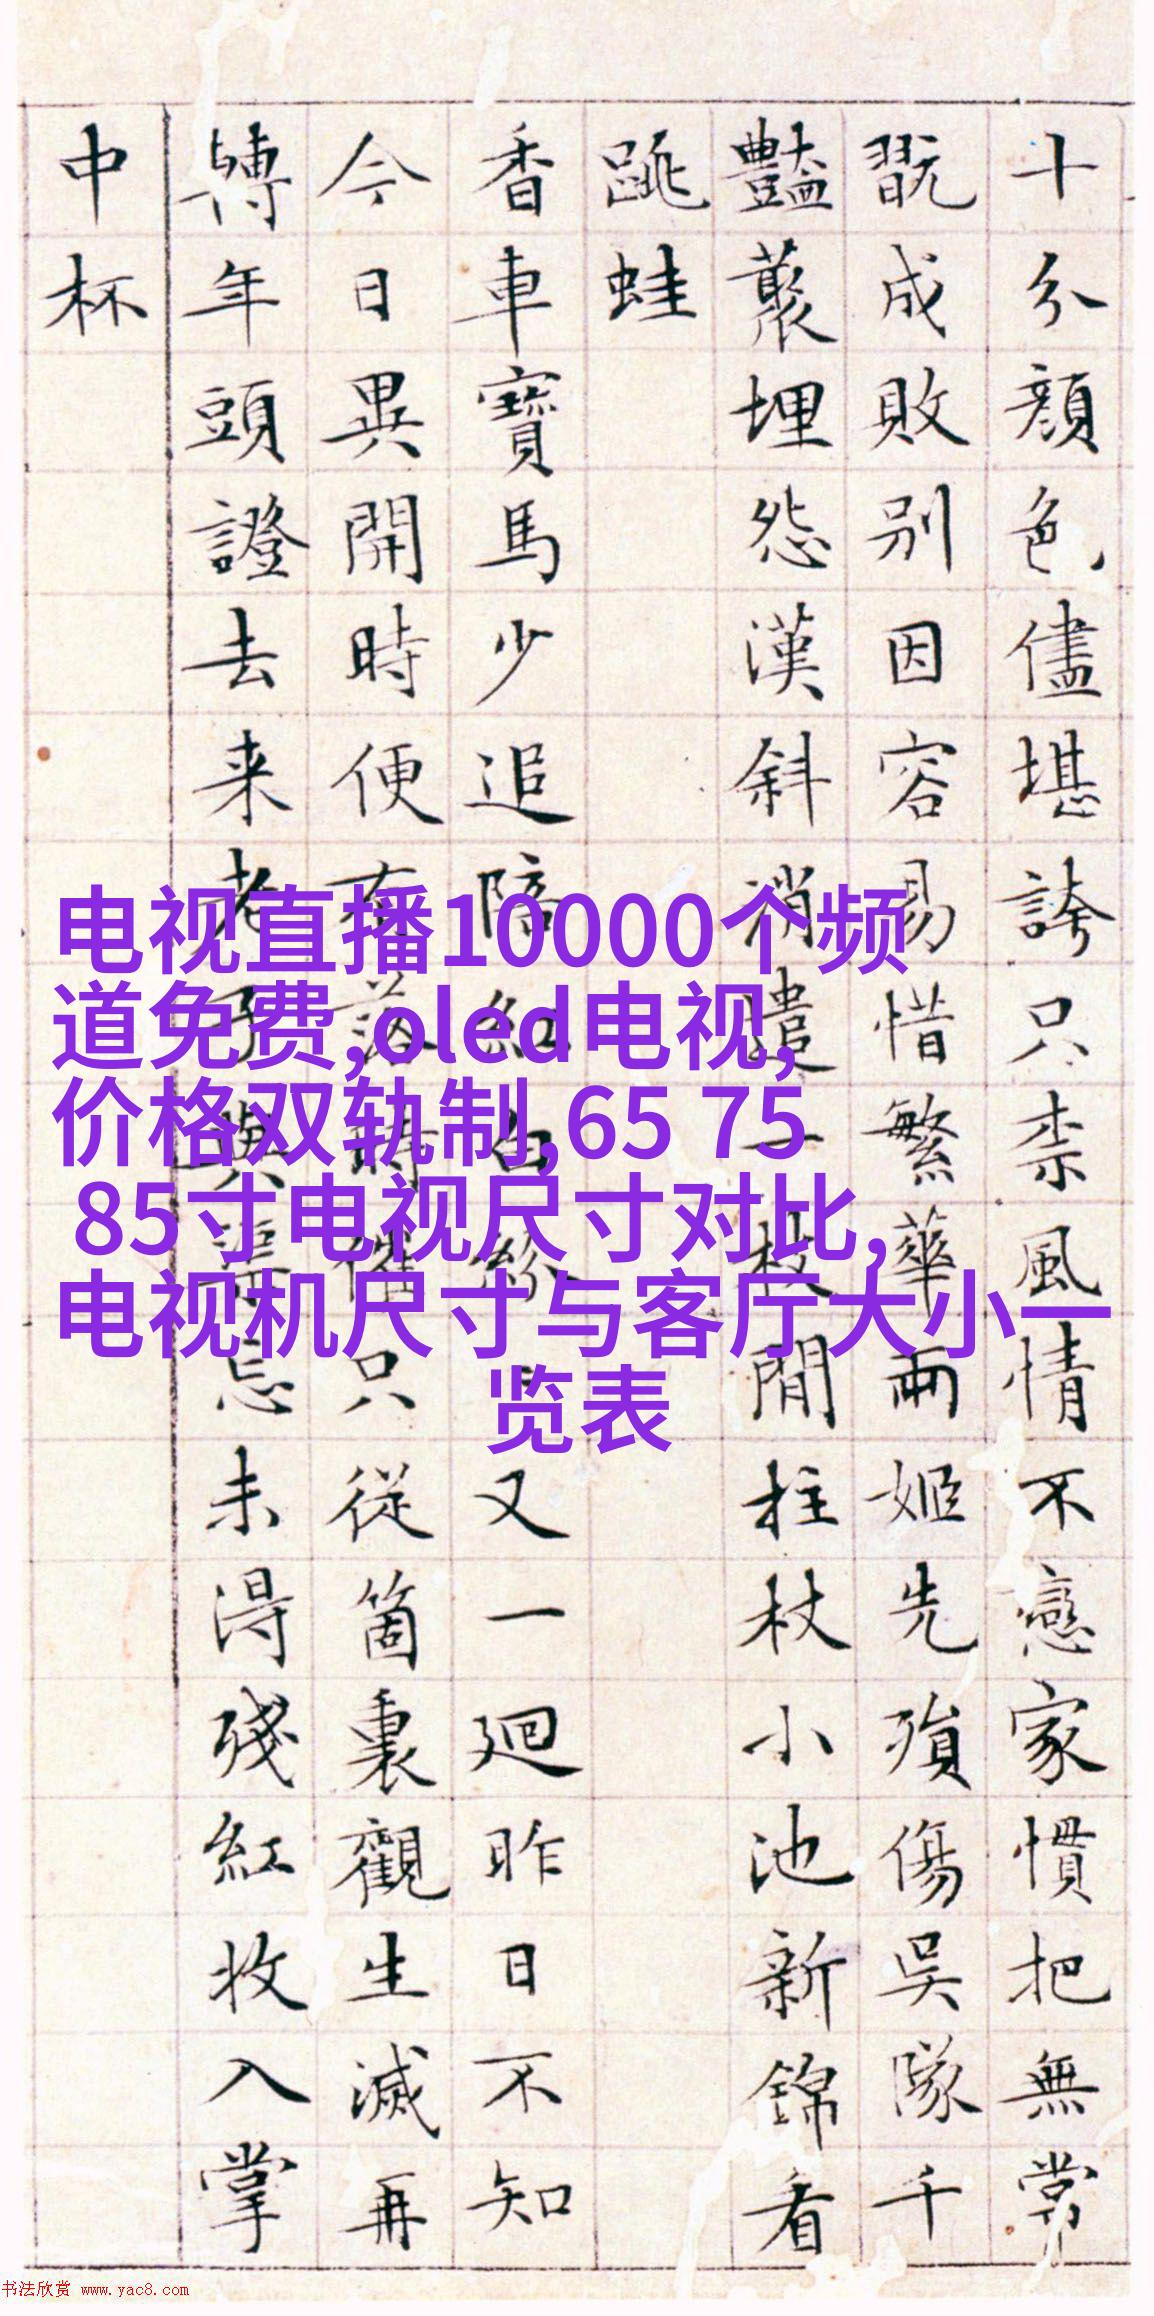 十分顔色儘堪誇只柰風情不戀家慣把無常
翫成敗别因容易惜繁華兩姬先殞傷吳隊千
豔叢埋怨漢斜消遣一枝閒柱杖小池新錦看
跳蛙
香車寶馬少追陪紅白紛又一廻昨日不知
今日異開時便有落時催只從箇裏觀生滅再
轉年頭證去来老子與渠忘未淂殘紅收入掌
中杯
电视直播10000个频
道免费,oled电视,
价格双轨制,65 75
85寸电视尺寸对比,
电视机尺寸与客厅大小一
览表
书法欣赏 www.yac8.com